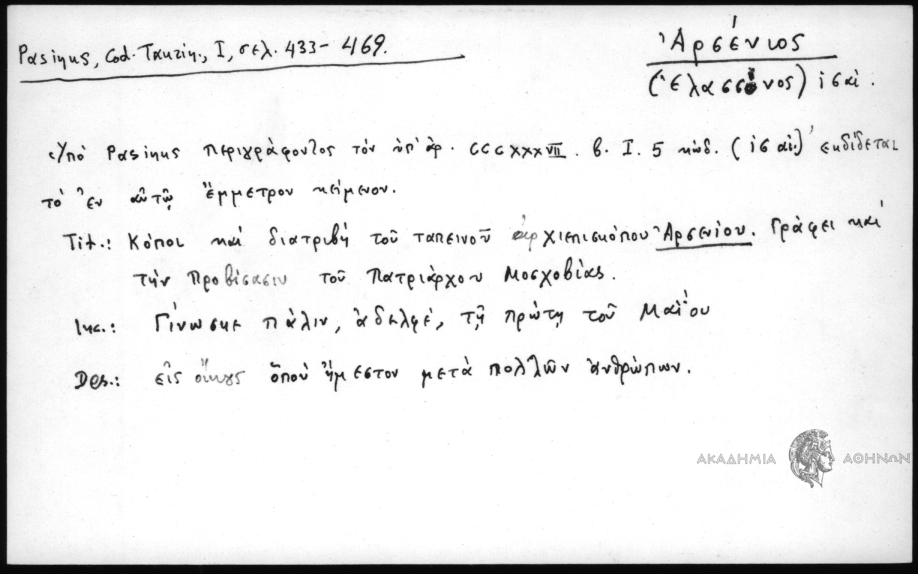 Pasinus, Cod. Taurin., I, σελ. 433-469.
Ἀρσένιος
(Ἐλασσόνος) ις αἰ.
Ὑπό Pasinus περιγράφοντος τόν ὑπ' ἀρ. CCCXXXVII. b. I. 5 κώδ. (ις αἰ.) ἐκδίδεται
τό ἐν αὐτῷ ἔμμετρον κείμενον.
Tit.: Κόποι καί διατριβή τοῦ ταπεινοῦ ἀρχιεπισκόπου Ἀρσενίου. Γράφει καί
τήν προβίσασιν τοῦ Πατριάρχου Μοσχοβίας.
Inc.: Γίνωσκε πάλιν, ἀδελφέ, τῇ πρώτῃ τοῦ Μαΐου
Des.: εἰς οἴκους ὅπου ἤμεστον μετά πολλῶν ἀνθρώπων.
ΑΚΑΔΗΜΙΑ ΑΘΗΝΩΝ